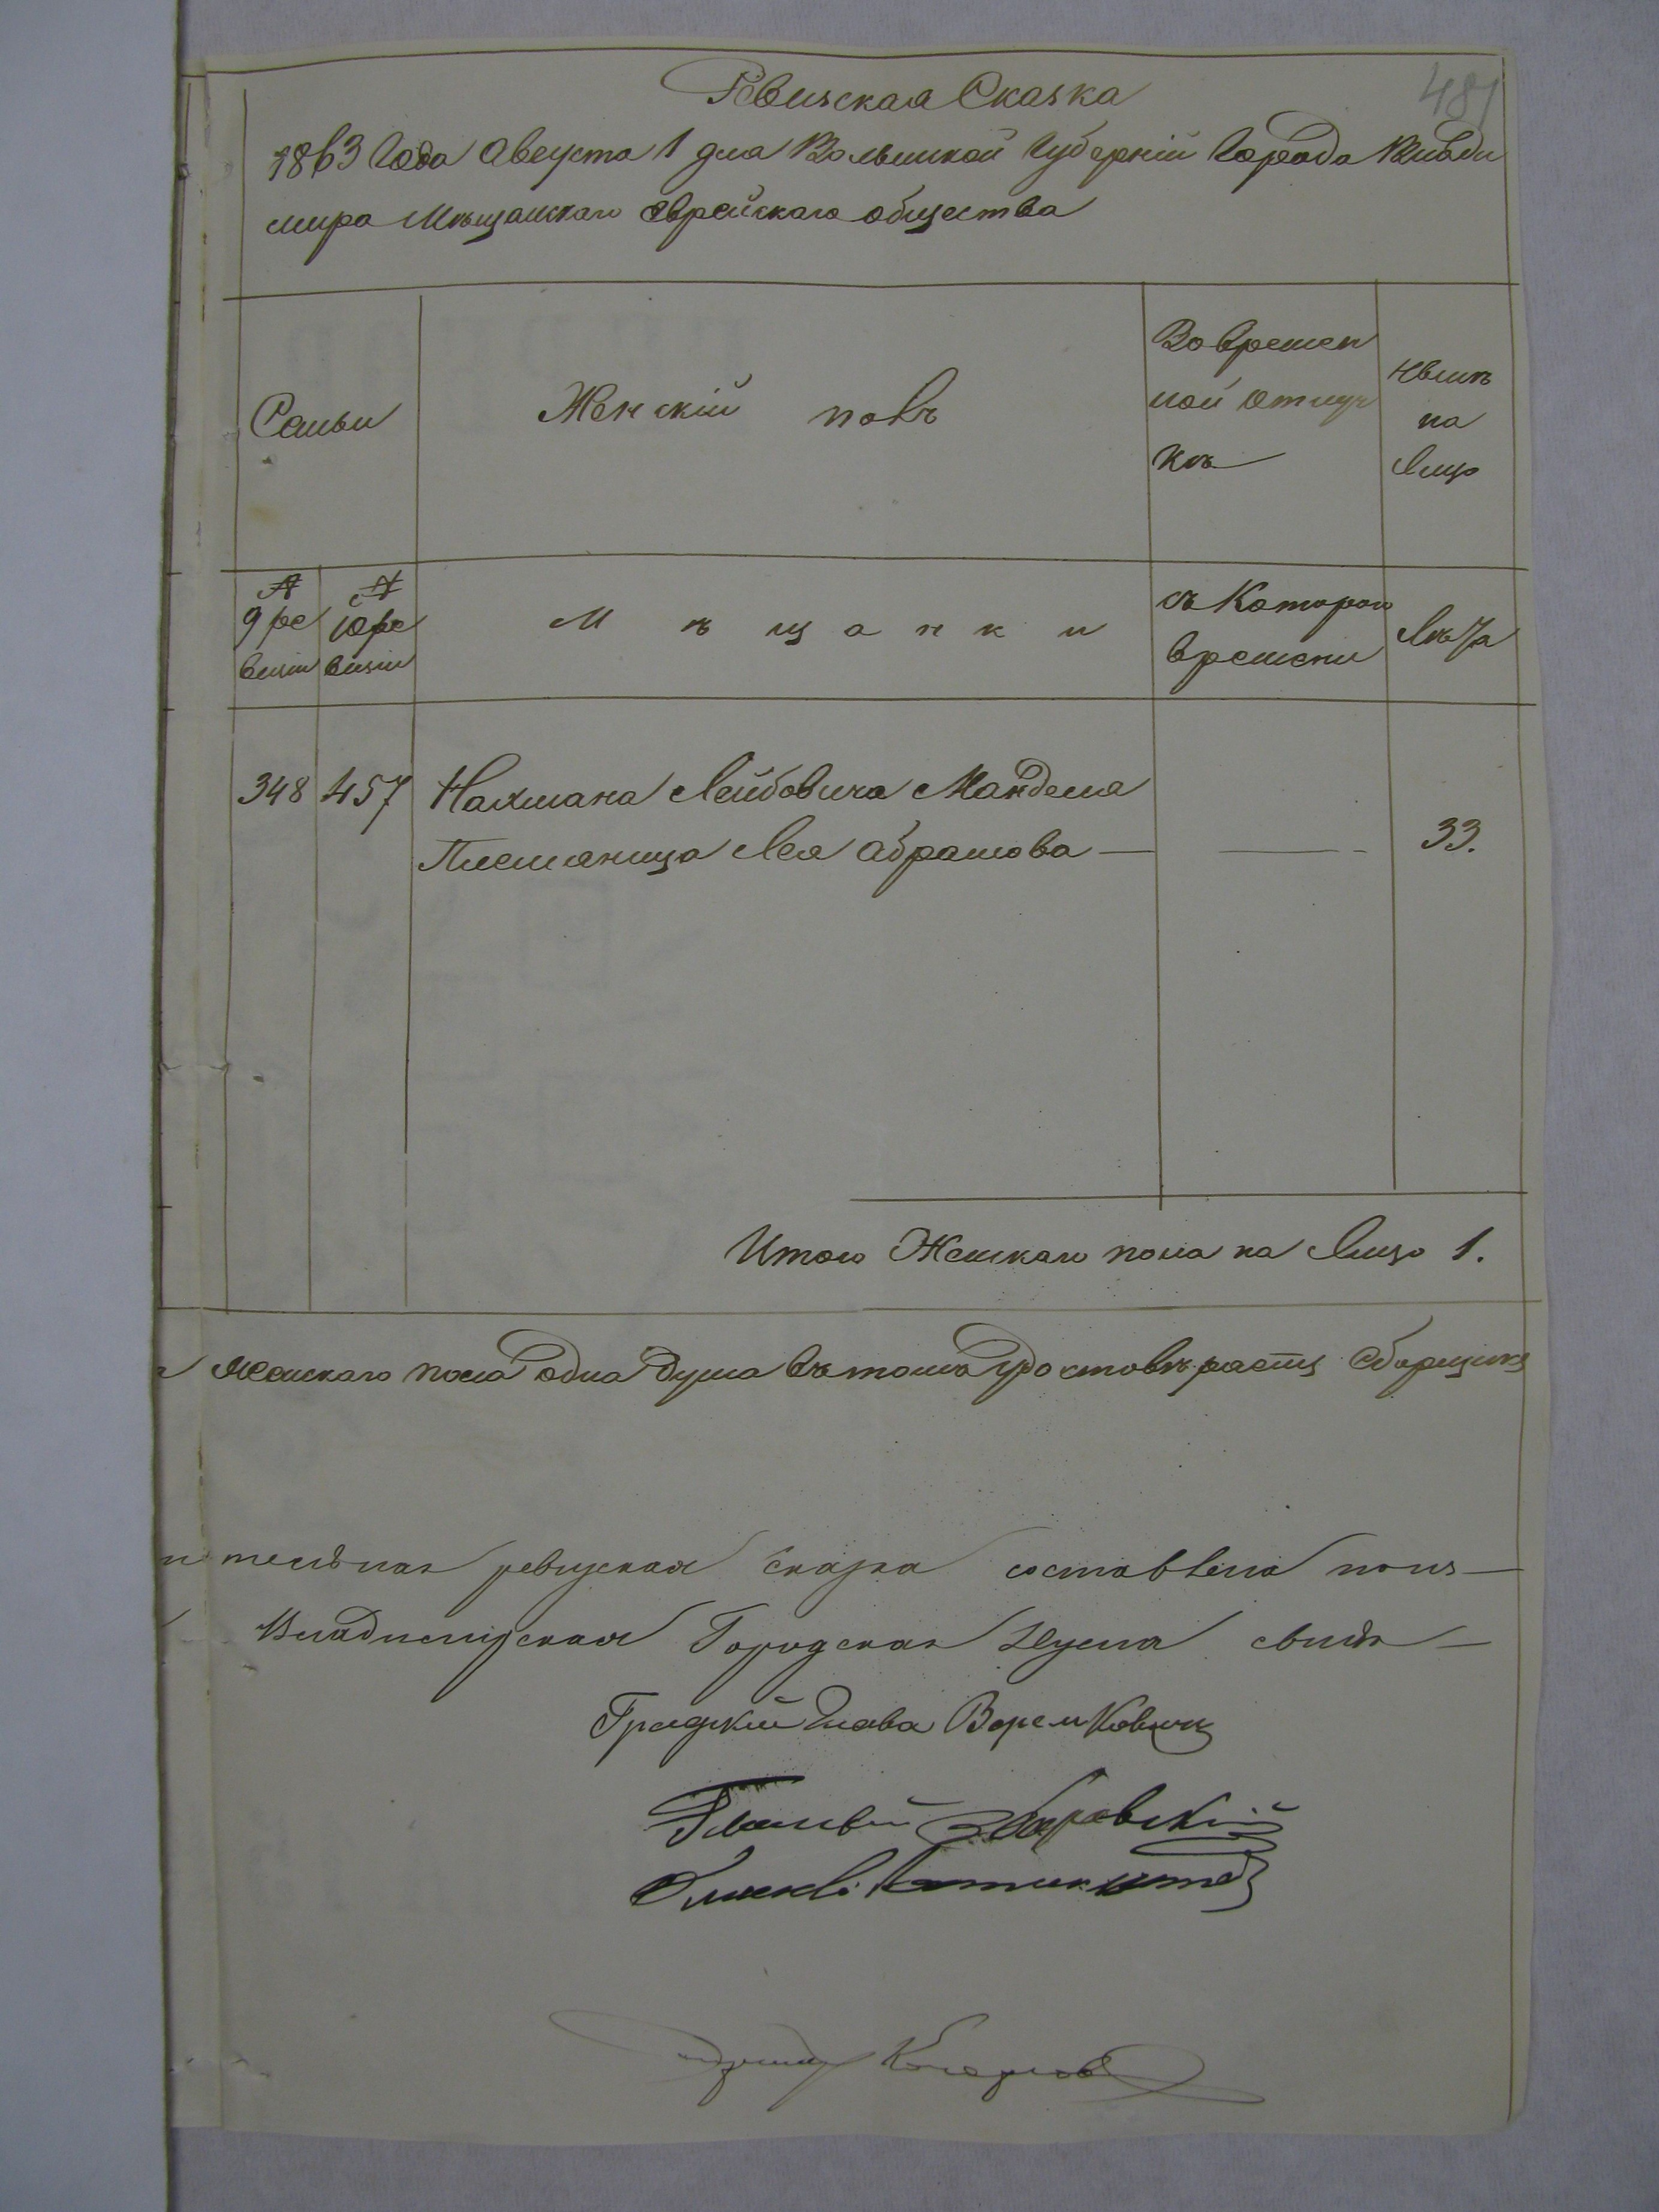 481
Ревизская Сказка
1863 Года Августа 1 дня Волынской Губерніи Города Влади
мира Мѣщанскаго Еврейскаго общества
Семьи
Женскій полъ
Во времен
ной отлуч
кѣ
Нынѣ
на
Лицо
№
9 ре
визіи
№
10 ре
визіи
Мѣщанки
съ Котораго
времени
Лѣта
348 457 Нахмана Лейбовича Манделя
Племяница Лея Абрамова — — 33.
Итого Женскаго пола на Лицо 1.
женскаго пола одна душа въ томъ удостовѣряетъ Сборщикъ
тельная ревизская сказка составлена по из-
Владимірская Городская Дума свидѣ-
Градскій Глава
Гласный
Гласный